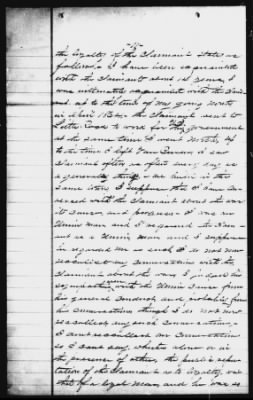 the loyalty of the Claimant states as
follows. I have been acquainted
with the Claimant about 15 years, I
was intimately acquainted with the Claim-
ant up to the time of my going North
in 1864. The Claimant went to
Little Rock to work for the government
at the same time I went North. Up
to the time I left Van Buren I saw
Claimant often as often as every day as
a general thing. We lived in the
same town. I suppose that I have con-
versed with the Claimant about the war
its causes and progress. I was a
Union man and I regarded the Claim-
ant as a Union man and I suppose
he regarded me as such. I do not now
recollect any conversations with the
Claimant about the war. I judged his
sympathies were with the Union cause from
his general conduct and probably from
his conversations though I do not now
recollect any such conversations.
I cannot recollect any conversation
so I cannot say whether alone or in
the presence of others. The public repu-
tation of the Claimant as to loyalty was
that of a loyal man, and he was so